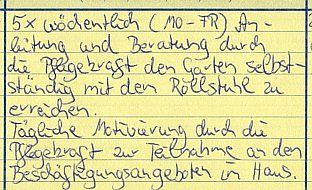 5x wöchentlich (MO-FR) An-
leitung und Beratung durch
die Pflegekraft den Garten selbst-
ständig mit dem Rollstuhl zu
erreichen.
Tägliche Motivierung durch die
Pflegekraft zur Teilnahme an den
Beschäftigungsangeboten im Haus.